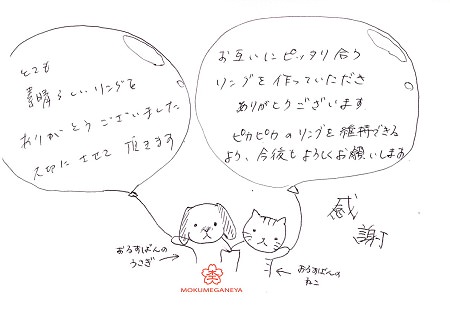 とても
素晴らしいリングを
ありがとうございました
大切にさせて頂きます
お互いにピッタリ合う
リングを作っていただき
ありがとうございます
ピカピカのリングを維持できる
よう、今後もよろしくお願いします
感謝
おるすばんの
うさぎ
おるすばんの
ねこ
MOKUMEGANEYA